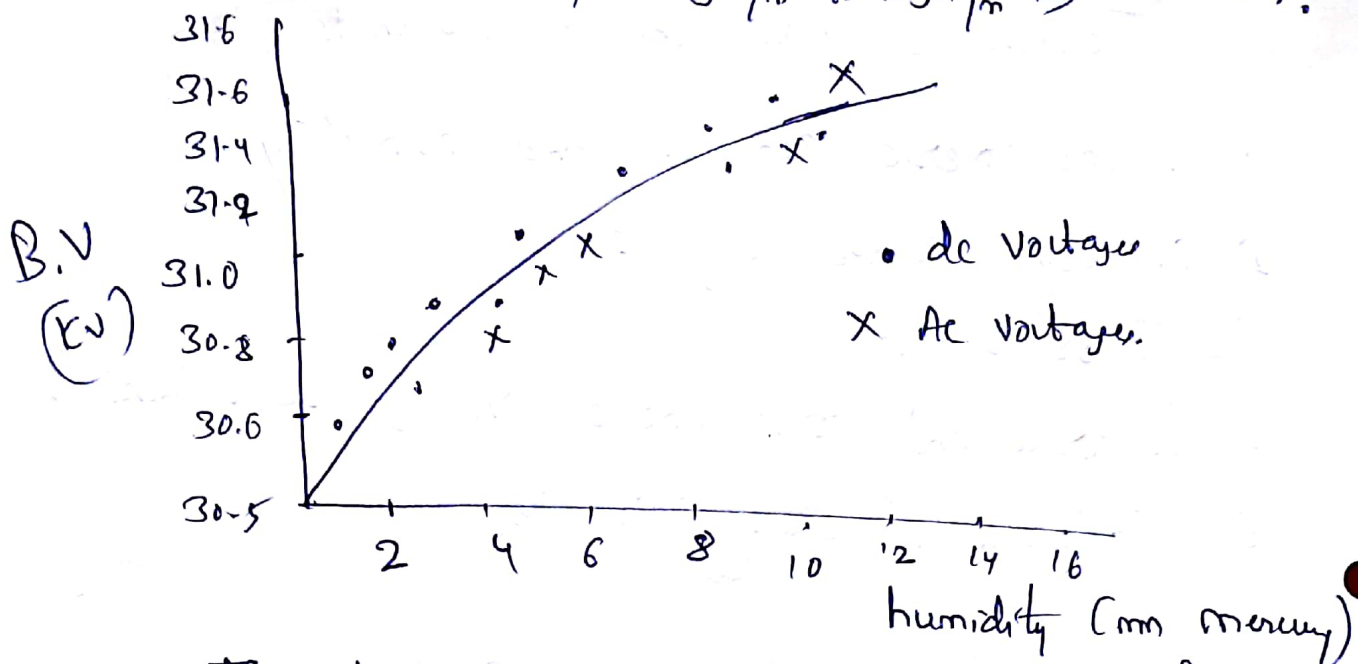 31.6
31.6
31.4
31.2
B.V
(KV)
31.0
30.8
30.6
30.5
• dc Voltages
X Ac Voltages.
2 4 6 8 10 12 14 16
humidity (mm mercury)